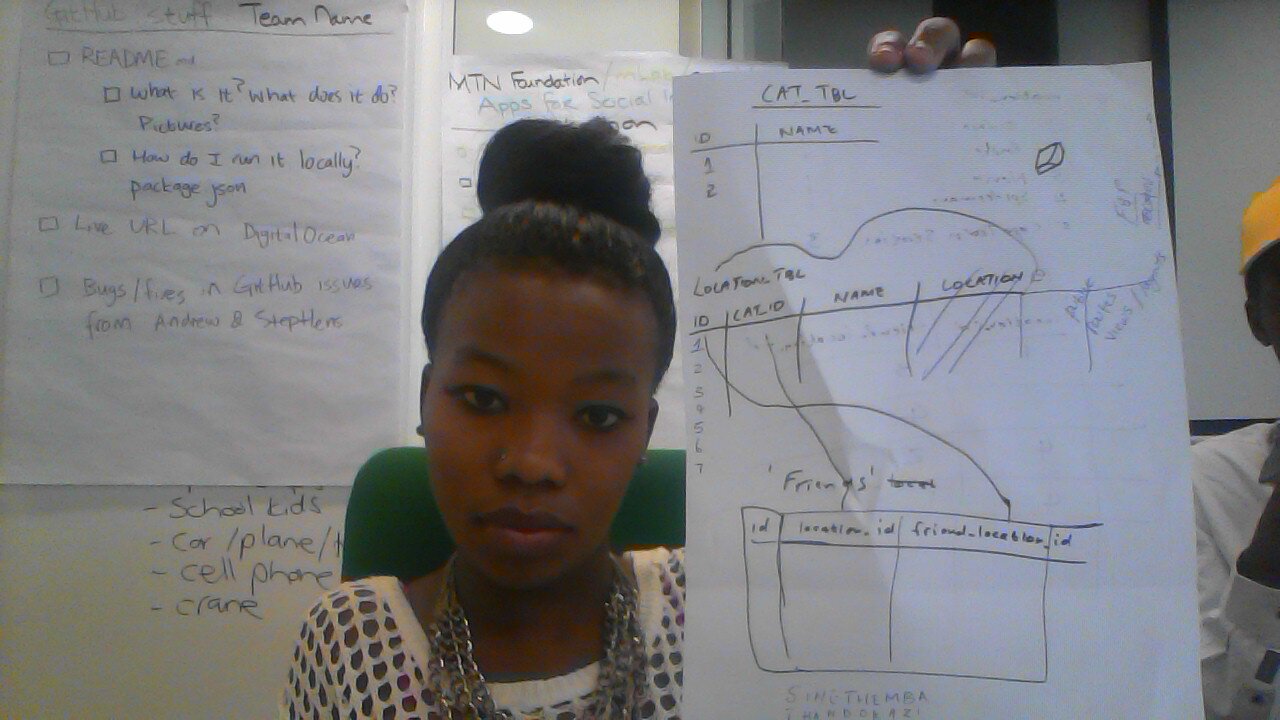 GitHub Stuff Team Name
README.md
What is it? What does it do?
Pictures?
How do I run it locally?
package.json
Live URL on Digital Ocean
Bugs/fixes in GitHub issues
from Andrew & Stephens
- School kids
- car /plane/
- cell phone
- crane
MTN Foundation/
Apps for Social
CAT_TBL
ID NAME
1
2
LOCATION_TBL
ID CAT_ID NAME LOCATION
1
2
3
4
5
6
7
'Friends' local
id location_id friend_location_id
SINETHEMBA
THANDOKAZI